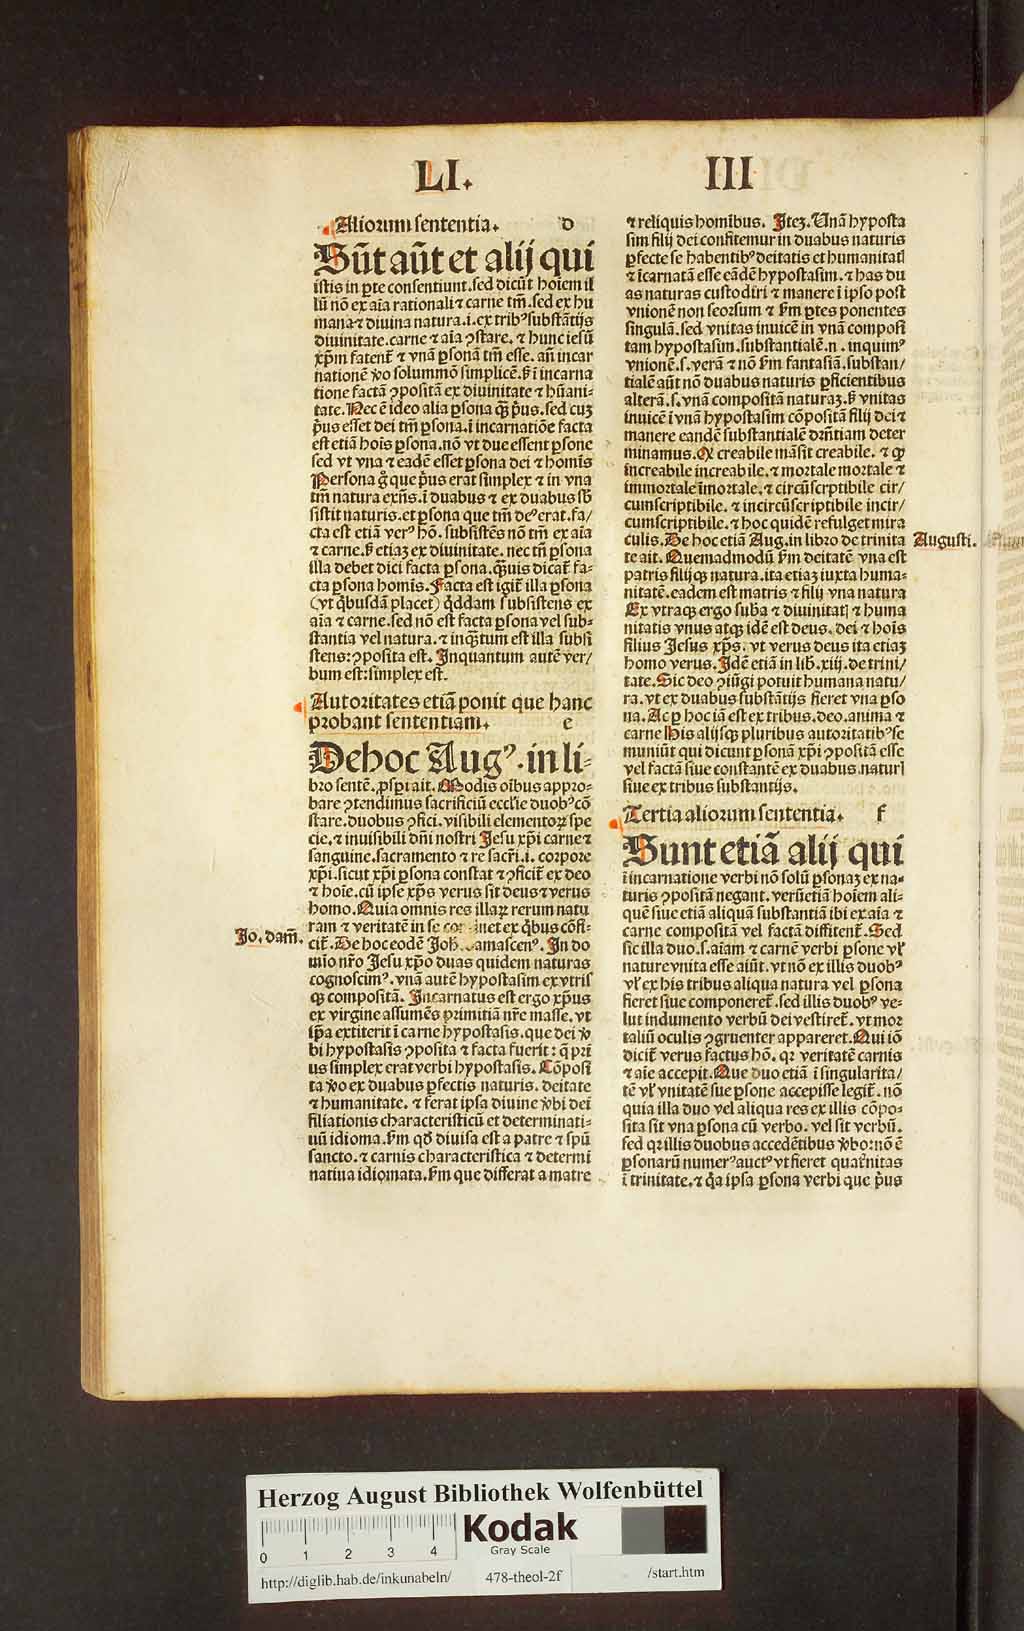 LI.
III
Aliorum sententia. D
Sūt aūt et alij qui
istis in ꝑte consentiunt. sed dicūt hoīem il
lū nō ex aīa rationali ⁊ carne tm̄. sed ex hu
mana ⁊ diuina natura .i. ex tribꝰ substātijs
diuinitate. carne ⁊ aīa ꝯstare. ⁊ hunc iesū
xp̄m fatent̄ ⁊ vnā ꝑsonā tm̄ esse. an̄ incar
nationē ꝟo solummō simplicē. ſꝫ ī incarna
tione factā ꝯpositā ex diuinitate ⁊ hūani-
tate. Nec ē ideo alia ꝑsona qꝫ̄ p̄us. sed cuꝫ
p̄us esset dei tm̄ ꝑsona. ī incarnatiōe facta
est etiā hoīs ꝑsona. nō vt due essent ꝑsone
sed vt vna ⁊ eadē esset ꝑsona dei ⁊ homīs
Persona g̊ que p̄us erat simplex ⁊ in vna
tm̄ natura exn̄s. ī duabus ⁊ ex duabus sb̄
sistit naturis. et ꝑsona que tm̄ deꝰ erat. fa/
cta est etiā verꝰ hō. subsistēs nō tm̄ ex aīa
⁊ carne. ſꝫ etiaꝫ ex diuinitate. nec tm̄ ꝑsona
illa debet dici facta ꝑsona. qꝫ̄uis dicat̄ fa-
cta ꝑsona homīs. Facta est igit̄ illa ꝑsona
(vt q̇busdā placet) q̇ddam subsistens ex
aīa ⁊ carne. sed nō est facta ꝑsona vel sub-
stantia vel natura. ⁊ inqꝫ̄tum est illa subsi
stens: ꝯposita est. Inquantum autē ver/
bum est: simplex est.
Autoritates etiā ponit que hanc
probant sententiam. e
De hoc Augꝰ. in li-
bro sentē. ꝓsp̄i ait. Modis oībus appro-
bare ꝯtendimus sacrificiū eccl̄ie duobꝰ cō
stare. duobus ꝯfici. visibili elementoꝝ spe
cie. ⁊ inuisibili dn̄i nostri Jesu xp̄i carne ⁊
sanguine. sacramento ⁊ re sacr̄i .i. corpore
xp̄i. sicut xp̄i ꝑsona constat ⁊ ꝯficit̄ ex deo
⁊ hoīe. cū ipse xp̄s verus sit deus ⁊ verus
homo. Quia omnis res illaꝝ rerum natu
ram ⁊ veritatē in se inet ex q̇bus cōfi-
cit̄. De hoc eodē Joh. amascenꝰ. In do
mīo nr̄o Jesu xp̄o duas quidem naturas
cognoscimꝰ. vnā autē hypostasim ex vtris
qꝫ compositā. Incarnatus est ergo xp̄us
ex virgine assumēs primitiā nr̄e masse. vt
ip̄a extiterit ī carne hypostasis. que dei ꝟ
bi hypostasis ꝯposita ⁊ facta fuerit: q̄ pri
us simplex erat verbi hypostasis. Cōposi
ta ꝟo ex duabus ꝑfectis naturis. deitate
⁊ humanitate. ⁊ ferat ipsa diuine ꝟbi dei
filiationis characteristicū et determinati-
uū idioma. ſm̄ qd̄ diuisa est a patre ⁊ spū
sancto. ⁊ carnis characteristica ⁊ determi
natiua idiomata. ſm̄ que differat a matre
Jo. dam̄.
⁊ reliquis homībus. Iteꝫ. Unā hyposta
sim filij dei confitemur in duabus naturis
ꝑfecte se habentibꝰ deitatis et humanitatꝭ
⁊ īcarnatā esse eādē hypostasim. ⁊ has du
as naturas custodiri ⁊ manere ī ipso post
vnionē non seorsum ⁊ ſm̄ ꝑtes ponentes
singulā. sed vnitas inuicē in vnā composi
tam hypostasim. substantialē .n. inquimꝰ
vnionē .s. verā ⁊ nō ſm̄ fantasiā. substan/
tialē aūt nō duabus naturis ꝑficientibus
alterā .s. vnā compositā naturaꝫ. ſꝫ vnitas
inuicē ī vnā hypostasim cōpositā filij dei ⁊
manere eandē substantialē dr̄ntiam deter
minamus. Qꝫ creabile māsit creabile. ⁊ ꝙ
increabile increabile. ⁊ mortale mortale ⁊
immortale īmortale. ⁊ circūscrptibile cir/
cumscriptibile. ⁊ incircūscriptibile incir/
cumscriptibile. ⁊ hoc quidē refulget mira
culis. De hoc etiā Aug. in libro de trinita
te ait. Quemadmodū ſm̄ deitatē vna est
patris filijqꝫ natura. ita etiaꝫ iuxta huma-
nitatē. eadem est matris ⁊ filij vna natura
Ex vtraqꝫ ergo suba ⁊ diuinitatꝭ ⁊ huma
nitatis vnus atqꝫ idē est deus. dei ⁊ hoīs
filius Jesus xp̄s. vt verus deus ita etiaꝫ
homo verus. Idē etiā in lib. xiij. de trini/
tate. Sic deo ꝯiūgi potuit humana natu/
ra. vt ex duabus substātijs fieret vna ꝑso
na. Ac ꝑ hoc iā est ex tribus. deo. anima ⁊
carne His alijsqꝫ pluribus autoritatibꝰ se
muniūt qui dicunt ꝑsonā xp̄i ꝯpositā esse
vel factā siue constantē ex duabus naturꝭ
siue ex tribus substantijs.
Tertia aliorum sententia. f
Sunt etiā alij qui
ī incarnatione verbi nō solū ꝑsonaꝫ ex na-
turis ꝯpositā negant. verūetiā hoīem ali-
quē siue etiā aliquā substantiā ibi ex aīa ⁊
carne compositā vel factā diffitent̄. Sed
sic illa duo .s. aīam ⁊ carnē verbi ꝑsone vl̓
nature vnita esse aiūt. vt nō ex illis duobꝰ
vl̓ ex his tribus aliqua natura vel ꝑsona
fieret siue componeret̄. sed illis duobꝰ ve-
lut indumento verbū dei vestiret̄. vt mor
taliū oculis ꝯgruenter appareret. Qui iō
dicit̄ verus factus hō. qꝛ veritatē carnis
⁊ aīe accepit. Que duo etiā ī singularita/
tē vl̓ vnitatē sue ꝑsone accepisse legit̄. nō
quia illa duo vel aliqua res ex illis cōpo-
sita sit vna ꝑsona cū verbo. vel sit verbū.
sed qꝛ illis duobus accedētibus ꝟbo: nō ē
ꝑsonarū numerꝰ auctꝰ vt fieret quat̄nitas
ī trinitate. ⁊ q̇a ipsa ꝑsona verbi que p̄us
Augusti.
Herzog August Bibliothek Wolfenbüttel
0 1 2 3 4
Kodak
Gray Scale
http://diglib.hab.de/inkunabeln/ 478-theol-2f /start.htm